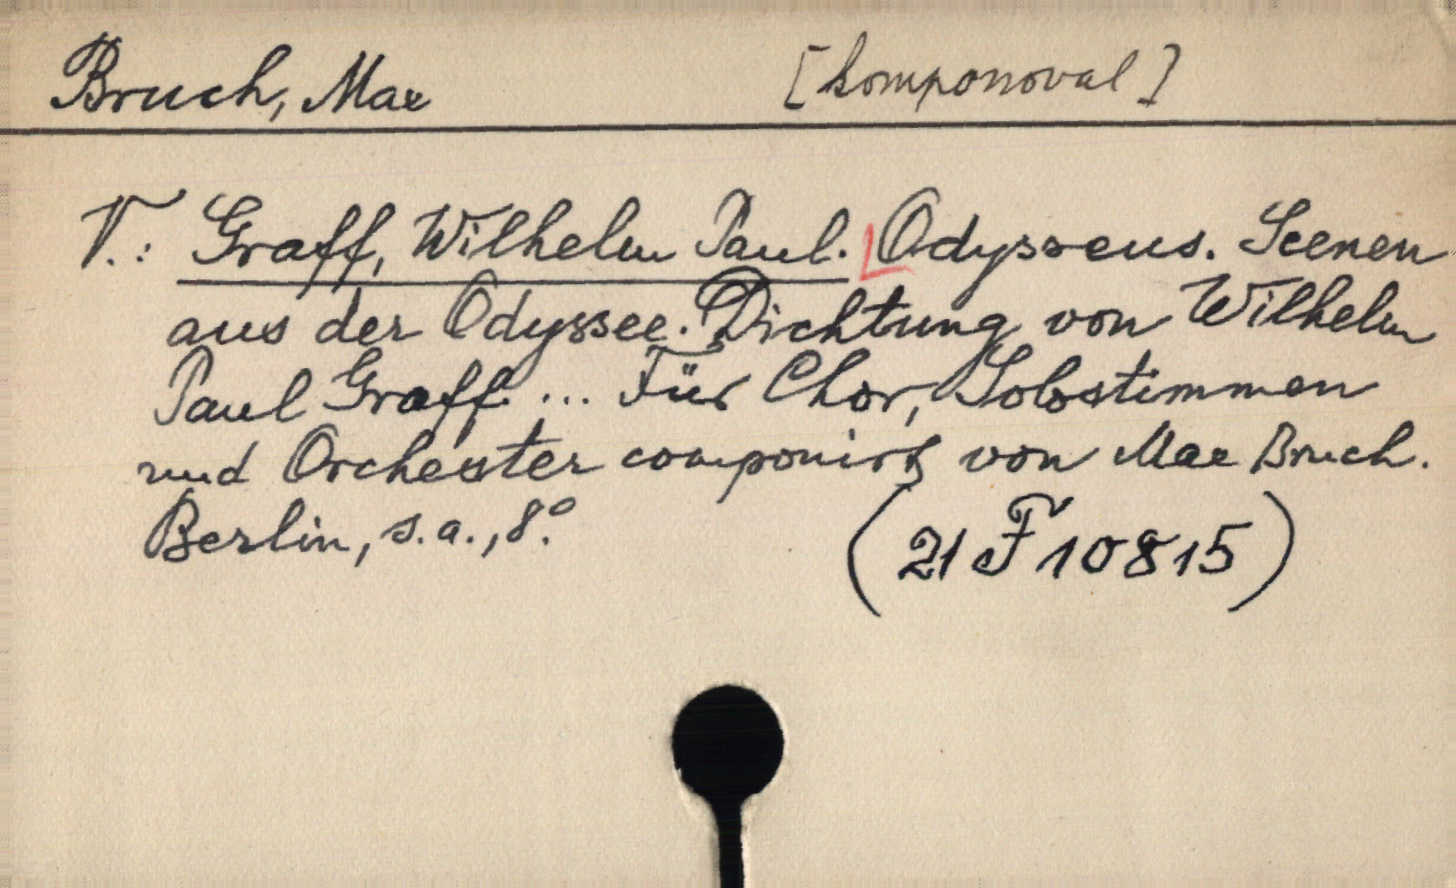 Bruch, Max [komponoval]
V.: Graff, Wilhelm Paul. Odysseus. Scenen
aus der Odyssee. Dichtung von Wilhelm
Paul Graff ... Für Chor, Solostimmen
und Orchester componirt von Max Bruch.
Berlin, s.a., 8°.
(21 F 10815)